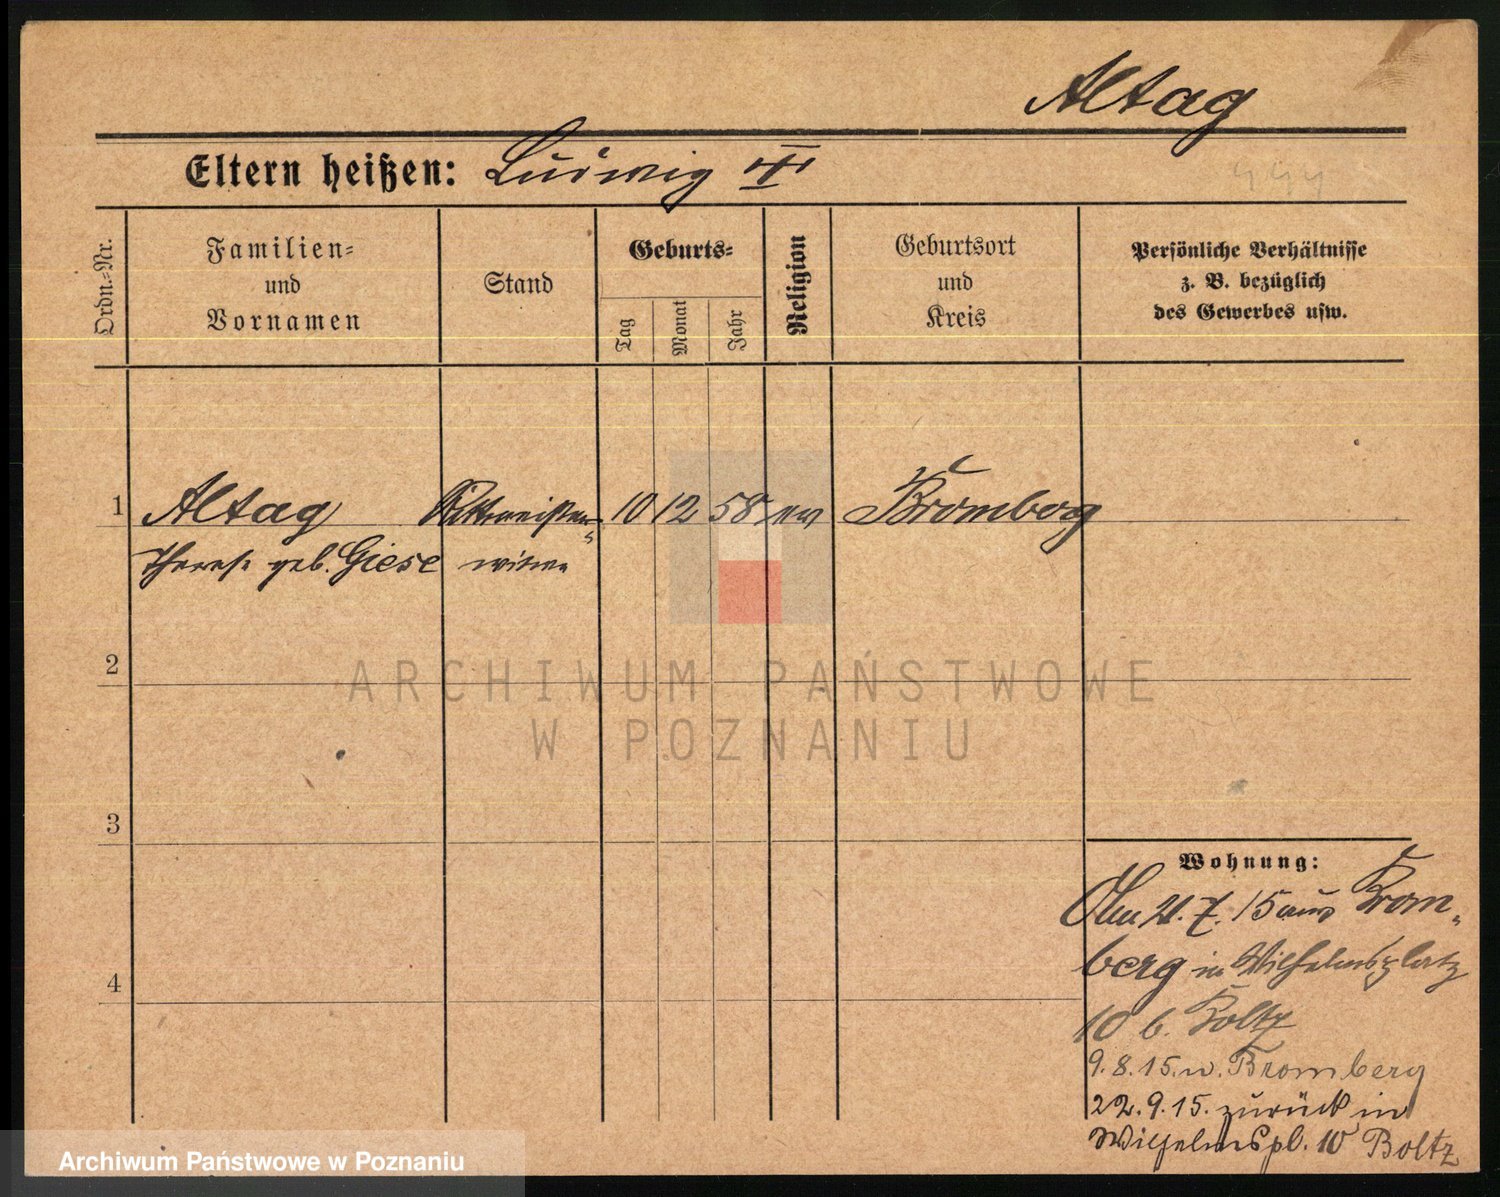 Altag
Eltern heißen: Ludwig
Ordn.-Nr.
Familien-
und
Vornamen
Stand
Geburts-
Tag
Monat
Jahr
Religion
Geburtsort
und
Kreis
Persönliche Verhältnisse
z. B. bezüglich
des Gewerbes usw.
1 Altag Rittmeister- 10 12 58 ev Bromberg
Therese geb. Giese witwe
2
3
4
Wohnung:
21. 7. 15 aus Brom-
berg in Wilhelmsplatz
10 b. Boltz
9. 8. 15. n. Bromberg
22. 9. 15. zurück in
Wilhelmspl. 10 Boltz
ARCHIWUM PAŃSTWOWE
W POZNANIU
Archiwum Państwowe w Poznaniu